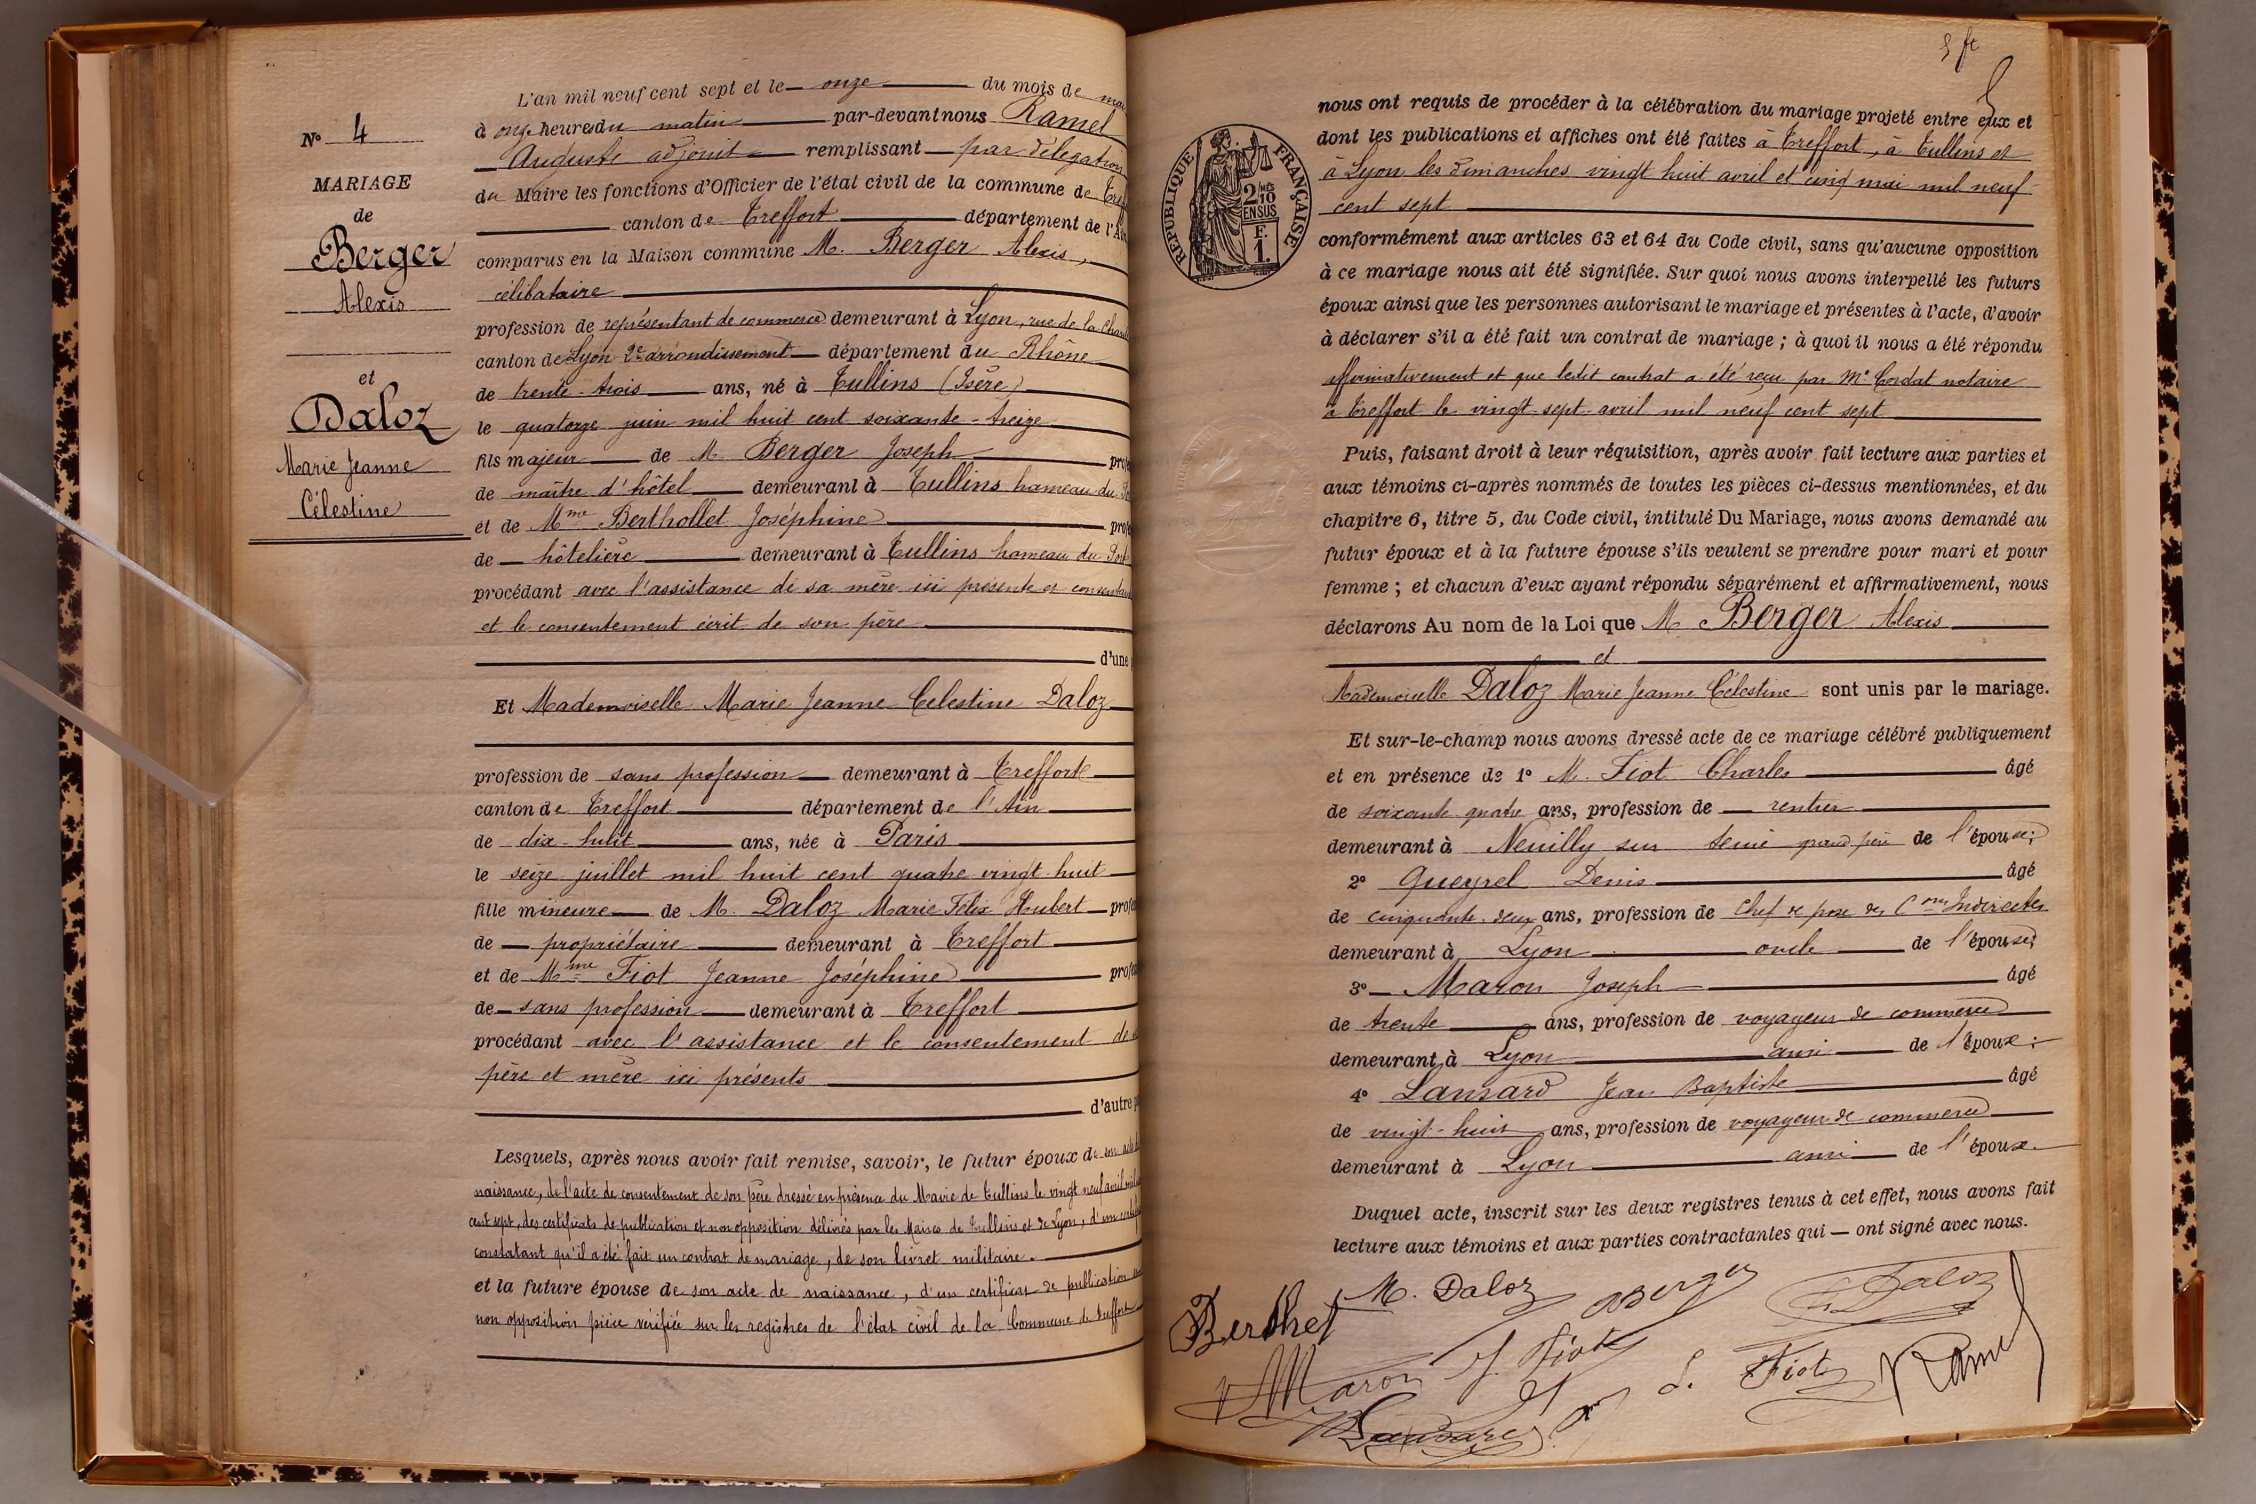 N° 4
MARIAGE
de
Berger
Alexis
et
Daloz
Marie Jeanne
Célestine
L'an mil neuf cent sept et le onze du mois de mai
à onze heures du matin par-devant nous Ramel
Auguste adjoint remplissant par délégation
du Maire les fonctions d'Officier de l'état civil de la commune de
canton de Treffort département de l'
comparus en la Maison commune M. Berger Alexis,
célibataire
profession de représentant de commerce demeurant à Lyon, rue de la
canton de Lyon 2e arrondissement département du Rhône
de trente-trois ans, né à Tullins (Isère)
le quatorze juin mil huit cent soixante-treize
fils majeur de M. Berger Joseph
de maître d'hôtel demeurant à Tullins hameau du
et de Mme Berthollet Joséphine
de hôtelière demeurant à Tullins hameau du
procédant avec l'assistance de sa mère ici présente et
et le consentement écrit de son père
d'une
Et Mademoiselle Marie Jeanne Celestine Daloz
profession de sans profession demeurant à Treffort
canton de Treffort département de l'Ain
de dix-huit ans, née à Paris
le seize juillet mil huit cent quatre vingt huit
fille mineure de M. Daloz Marie Félix Hubert
de propriétaire demeurant à Treffort
et de Mme Fiot Jeanne Joséphine
de sans profession demeurant à Treffort
procédant avec l'assistance et le consentement de
père et mère ici présents
d'autre
Lesquels, après nous avoir fait remise, savoir, le futur époux de son acte de
naissance, de l'acte de consentement de son père dressé en présence du Maire de Tullins le vingt neuf avril mil
cent sept, des certificats de publication et non opposition délivrés par les Maires de Tullins et de Lyon, d'un
constatant qu'il a été fait un contrat de mariage, de son livret militaire.
et la future épouse de son acte de naissance, d'un certificat de publication
non opposition pièce vérifiée sur les registres de l'état civil de la Commune de Treffort
5 ft
RÉPUBLIQUE FRANÇAISE
2/10
EN SUS
F.
1.
nous ont requis de procéder à la célébration du mariage projeté entre eux et
dont les publications et affiches ont été faites à Treffort, à Tullins et
à Lyon les dimanches vingt huit avril et cinq mai mil neuf
cent sept
conformément aux articles 63 et 64 du Code civil, sans qu'aucune opposition
à ce mariage nous ait été signifiée. Sur quoi nous avons interpellé les futurs
époux ainsi que les personnes autorisant le mariage et présentes à l'acte, d'avoir
à déclarer s'il a été fait un contrat de mariage ; à quoi il nous a été répondu
affirmativement et que ledit contrat a été reçu par Me Cordat notaire
à Treffort le vingt-sept avril mil neuf cent sept
Puis, faisant droit à leur réquisition, après avoir fait lecture aux parties et
aux témoins ci-après nommés de toutes les pièces ci-dessus mentionnées, et du
chapitre 6, titre 5, du Code civil, intitulé Du Mariage, nous avons demandé au
futur époux et à la future épouse s'ils veulent se prendre pour mari et pour
femme ; et chacun d'eux ayant répondu séparément et affirmativement, nous
déclarons Au nom de la Loi que M Berger Alexis
et
Mademoiselle Daloz Marie Jeanne Célestine sont unis par le mariage.
Et sur-le-champ nous avons dressé acte de ce mariage célébré publiquement
et en présence de 1° M. Fiot Charles âgé
de soixante quatre ans, profession de rentier
demeurant à Neuilly sur Seine grand père de l'épouse;
2° Queyrel Denis âgé
de cinquante deux ans, profession de Chef de poste des Cons Indirectes
demeurant à Lyon oncle de l'épouse;
3° Maron Joseph âgé
de trente ans, profession de voyageur de commerce
demeurant à Lyon ami de l'époux;
4° Lansard Jean Baptiste âgé
de vingt-huit ans, profession de voyageur de commerce
demeurant à Lyon ami de l'époux.
Duquel acte, inscrit sur les deux registres tenus à cet effet, nous avons fait
lecture aux témoins et aux parties contractantes qui ont signé avec nous.
M. Daloz ABerger Daloz
Berthet
Maron J. Fiot Fiot Ramel
Lansard